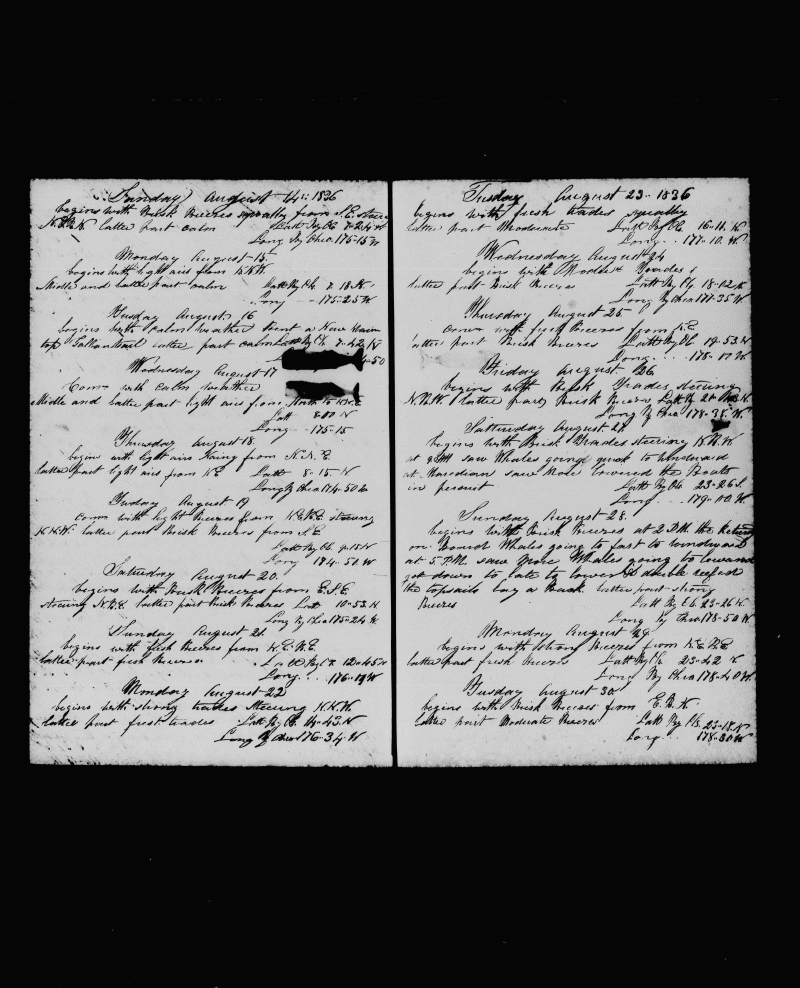 Sunday August 14 1836
begins with Brisk Breezes squally from N.E. steering
N.N.W latter part calm Latt By Ob 7-24 N
Long By Chro 175-15 W
Monday August 15
begins with light airs from N.N.W.
Middle and latter part calm Latt By Ob 7 18 N
Long 175-25 W
Tusday August 16
begins with calm weather Bent a New Main
top Gallantsail latter part calm Latt By Ob 7-42 N
50
Wednesday August 17
Coms with calm weather
Middle and latter part light airs from North to
Latt 8 00 N
Long 175-15
Thursday August 18
begins with light airs from N.N.E
latter part light airs from NE Latt 8-15 N
Long By Chro 174-50 W
August 19
coms with light Breezes from N.E. steering
N.N.W. latter part Brisk Breezes from N.E
Latt By Ob 9-18 N
Long 174-50 W
Saturday August 20
begins with Brisk Breezes from
steering latter part Brisk Breezes Latt 10-53 N
Long By Chro 175-24 W
Sunday August 21
begins with fresh Breezes from
latter part fresh Breezes Latt By Ob 12-45 N
Long 176-19 W
Monday August 22
begins with strong trades Steering N.N.W
latter part fresh trades Latt By Ob 14-43 N
Long By Chro 176-34 W
Tusday August 23 1836
begins with fresh trades squally
latter part Moderate Latt By Ob 16-11 N
Long 177-10 W
Wednesday August 24
begins with Moderate Trades
latter part Brisk Breezes Latt By Ob 18-02 N
Long By Chro 177-35 W
Thursday August 25
coms with fresh Breezes from N.E
latter part Brisk Breezes Latt By Ob 19-53 N
Long 178-10 W
Friday August 26
begins with Brisk Trades steering
N.N.W. latter part Brisk Breezes Latt By Ob 21 N
Long By Chro 178-38 W
Satturday August 27
begins with Brisk Trades steering N.N.W
at saw Whales going quick to windward
at Meredian saw More lowered the Boats
in persuit Latt By Ob 23-26
Long 179-00 W
Sunday August 28
begins with Brisk Breezes at 2 P.M. the Boats returnd
on Board Whales going to fast to windward
at 5 P.M. saw More Whales going to leeward
got down to late to lower double reefed
the topsails latter part strong
Breezes Latt By Ob 23-26 N
Long By Chro 178-50 W
Monday August 29
begins with strong Breezes from
latter part fresh Breezes Latt By Ob 23-42 N
Long By Chro 178-40 W
Tusday August 30
begins with Brisk Breezes from E.N.E.
latter part Moderate Breezes Latt By Ob 23-18 N
Long 178-30 W